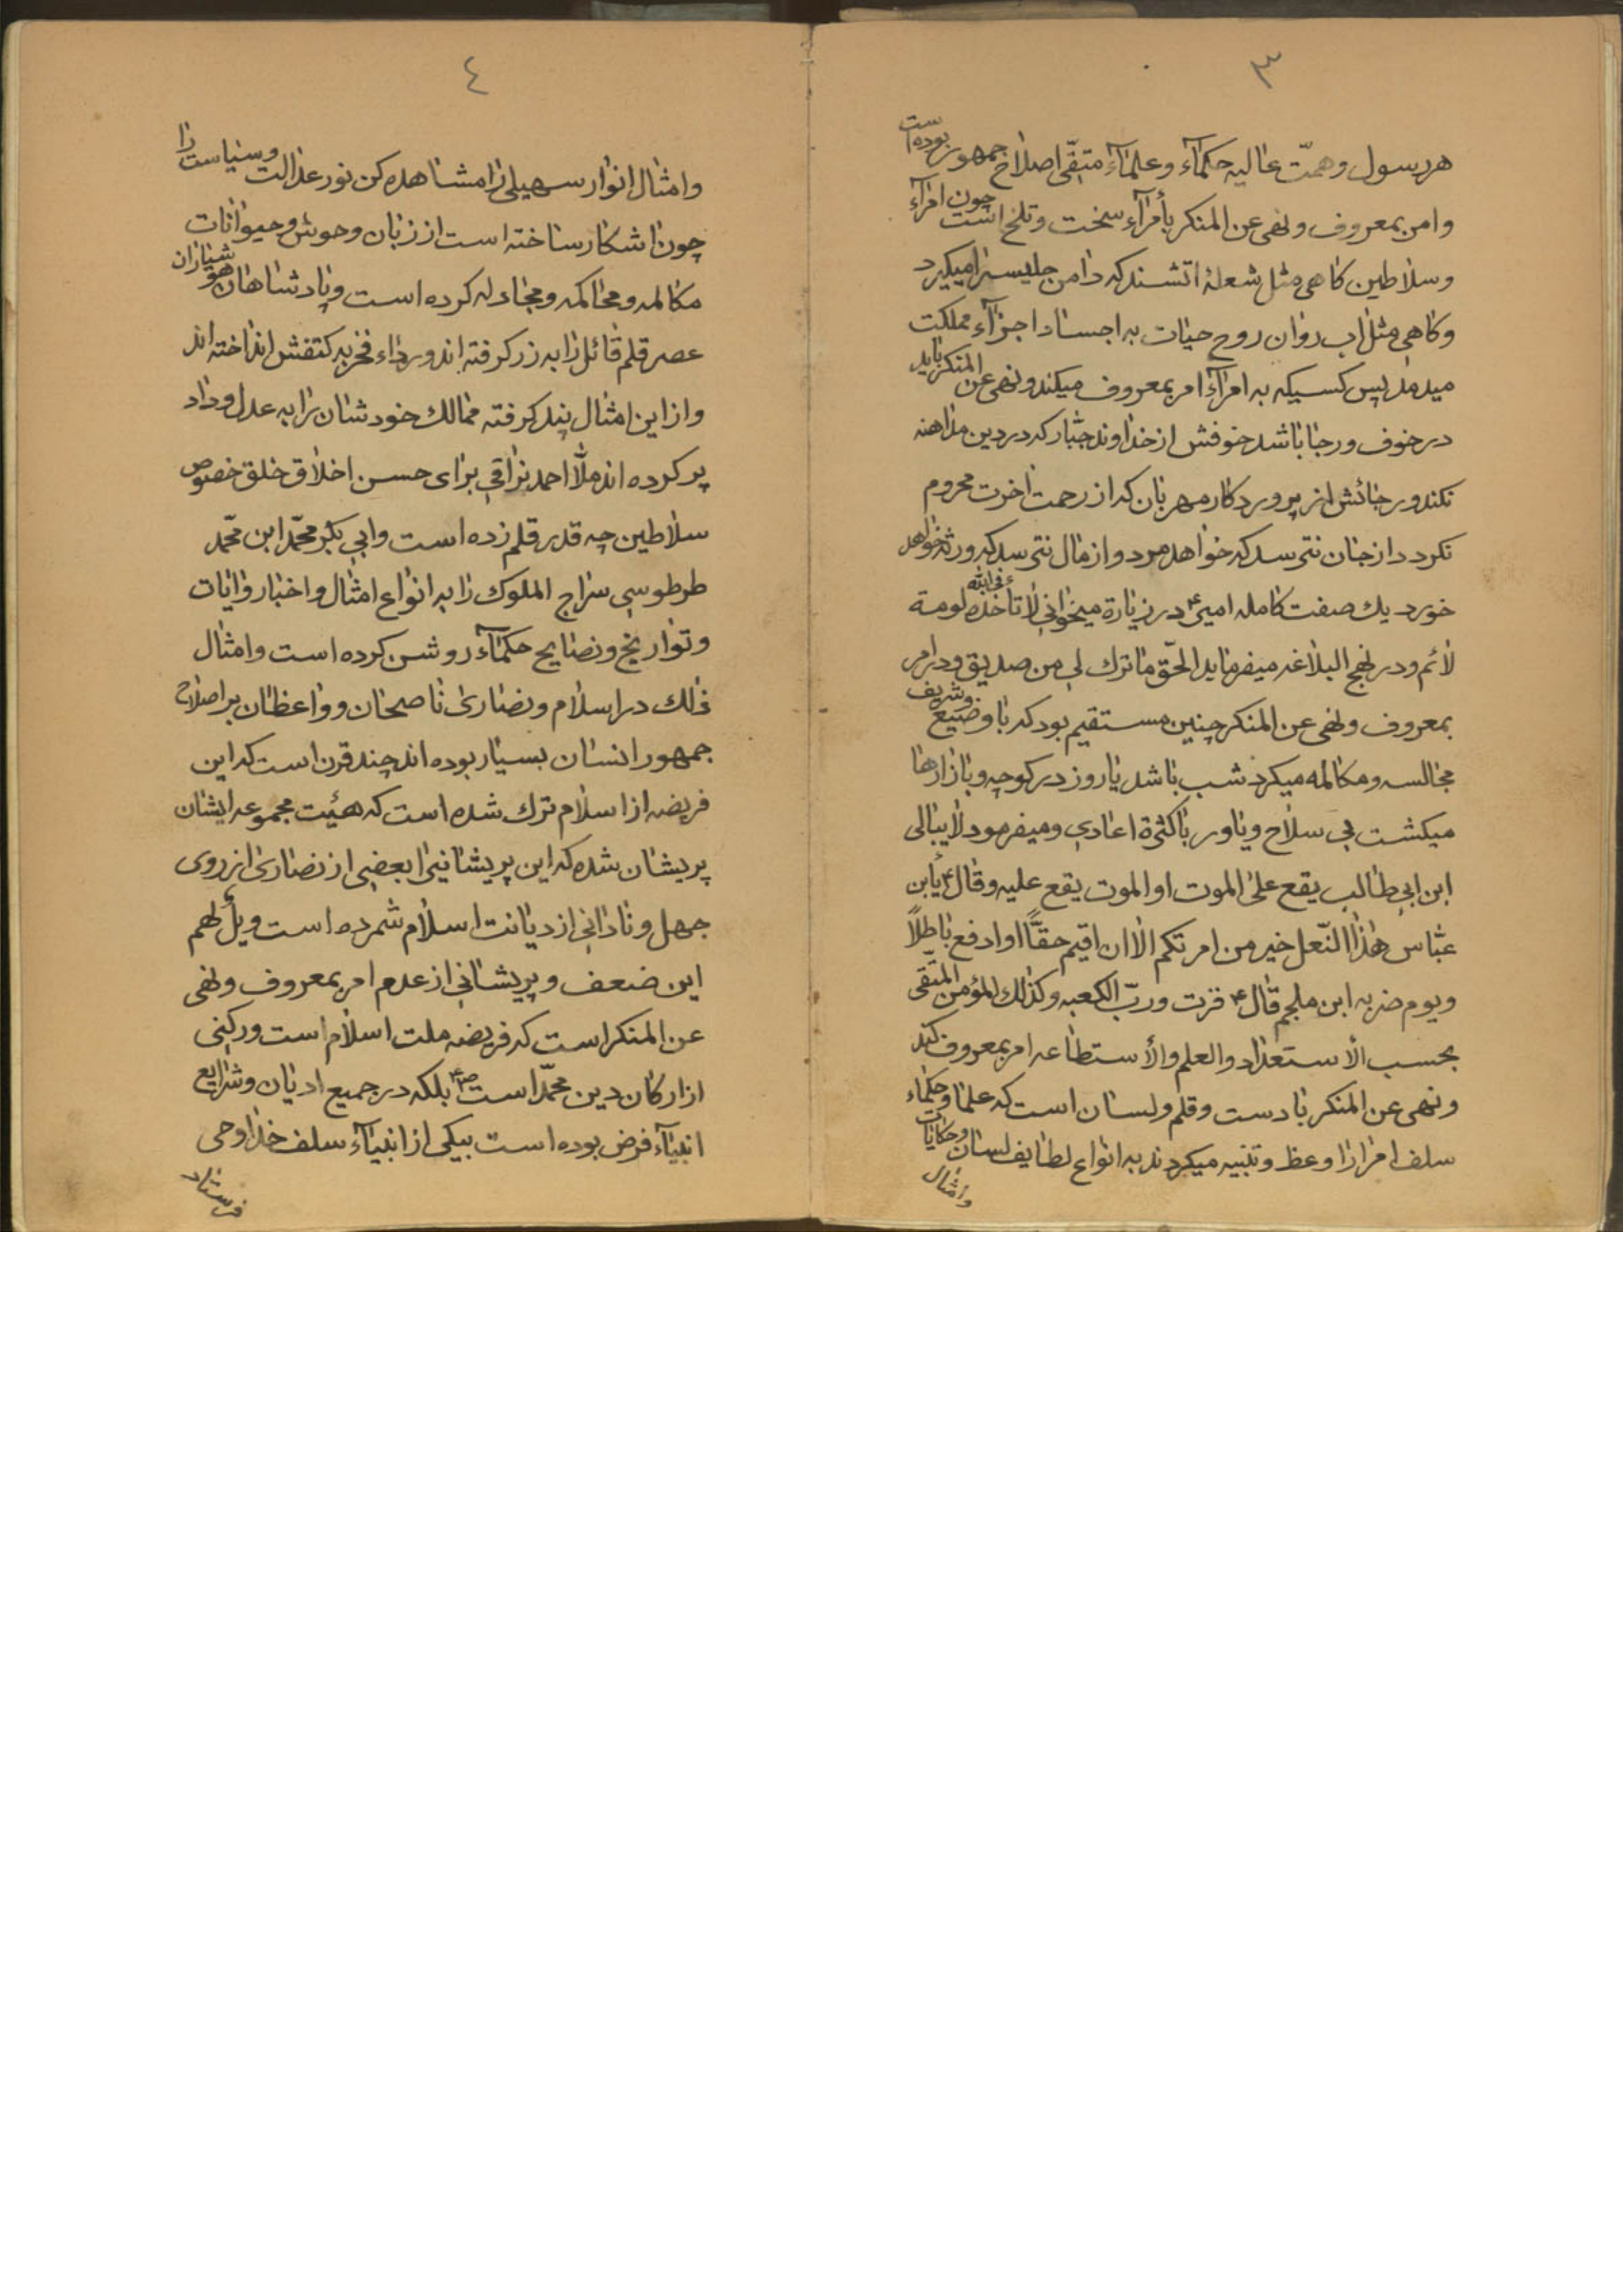 ٣
هر رسول و همّت عالیه حکمآء و علمآء متّقی اصلاح جمهور بوده است
و امر بمعروف و نهی عن المنکر بأمرآء سخت و تلخ است چون امرآء
و سلاطین کاهی مثل شعلهٔ اتشند که دامن جلیسرا میکیرد
و کاهی مثل اب روان روح حیات به اجساد اجزآء مملکت
میدمد پس کسیکه به امرآء امر بمعروف میکند و نهی عن المنکر باید
در خوف و رجا باشد خوفش از خداوند جبّار که در دین مداهنه
نکند و رجائش از پروردکار مهربان که از رحمت اخرت محروم
نکردد از جان نترسد که خواهد مرد و از مال نترسد که ورثه خواهد
خورد یك صفت کامله امیر ع در زیارة میخوانی لا تاخذه فی الله لومة
لائم و در نهج البلاغه میفرماید الحقّ ما ترك لی من صدیق و در امر
بمعروف و نهی عن المنکر چنین مستقیم بود که با وضیع و شریف
مجالسه و مکالمه میکرد شب باشد یا روز در کوچه و بازارها
میکشت بی سلاح و یاور با کثرة اعادی و میفرمود لا یبالی
ابن ابی طالب یقع علی الموت او الموت یقع علیه و قال ع یأبن
عبّاس هذا النّعل خیر من امرتکم الا ان اقیم حقّاً او ادفع باطلاً
و یوم ضربه ابن ملجم قال ع فزت و ربّ الکعبه و کذلك المؤمن المتّقی
بحسب الاستعداد و العلم و الأستطاعه امر بمعروف کند
و نهی عن المنکر با دست و قلم و لسان است که علما و حکماء
سلف امرا را وعظ و تنبیه میکردند به انواع لطایف لسان و حکایات
و امثال
٤
و امثال انوار سهیلی را مشاهده کن نور عدالت و سیاست را
چون اشکار ساخته است از زبان وحوش و حیوانات
مکالمه و محاکمه و مجادله کرده است و پادشاهان هوشیاران
عصر قلم قائل را به زر کرفته اند و رداء فخر به کتفش انداخته اند
و از این امثال پند کرفته ممالك خودشان را به عدل و داد
پر کرده اند ملّا احمد نراقی برای حسن اخلاق خلق خصوص
سلاطین چه قدر قلم زده است و ابی بکر محمّد ابن محّمد
طرطوسی سراج الملوك را به انواع امثال و اخبار و ایات
و تواریخ و نصایح حکمآء روشن کرده است و امثال
ذلك در اسلام و نصاری ناصحان و واعظان بر اصلاح
جمهور انسان بسیار بوده اند چند قرن است که این
فریضه از اسلام ترك شده است که هیئت مجموعه ایشان
پریشان شده که این پریشانیرا بعضی از نصاری از روی
جهل و نادانی از دیانت اسلام شمرده است ویلٌ لهم
این ضعف و پریشانی از عدم امر بمعروف و نهی
عن المنکر است که فریضه ملت اسلام است و رکنی
از ارکان دین محمّد است ص بلکه در جمیع ادیان و شرایع
انبیآء فرض بوده است بیکی از انبیآء سلف خدا وحی
فرستاد